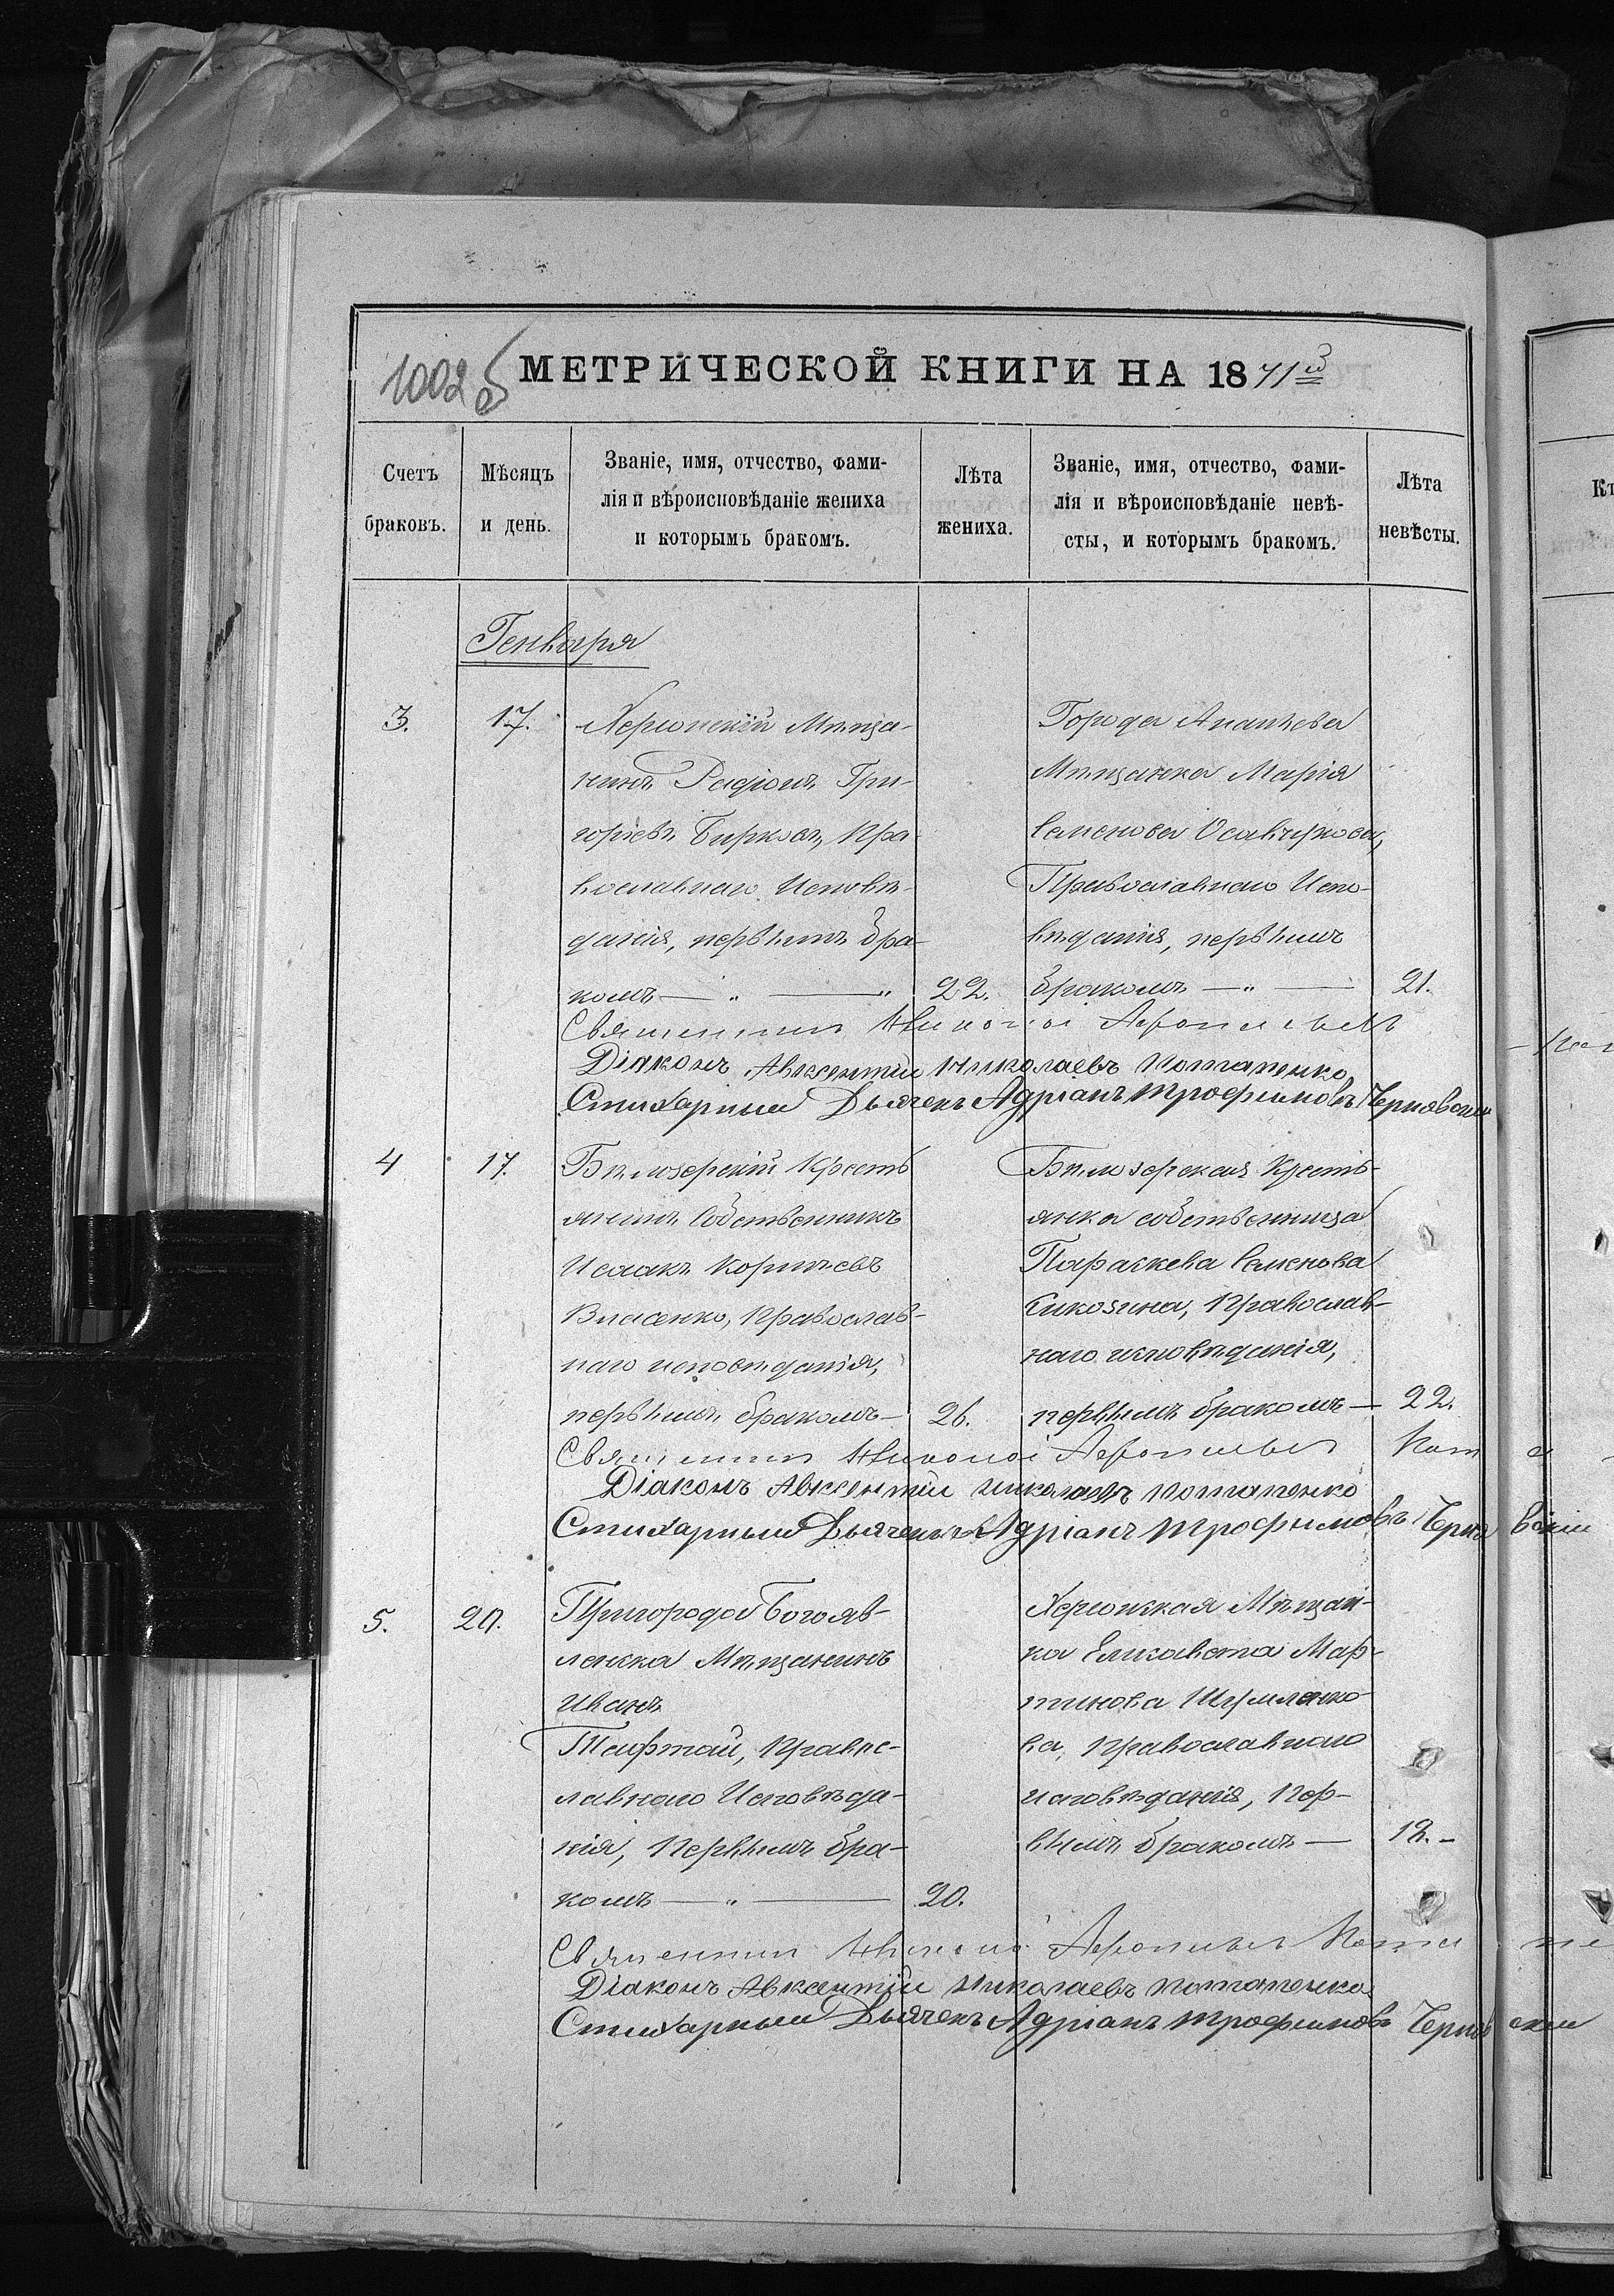 1002 б МЕТРИЧЕСКОЙ КНИГИ НА 1871й
Счетъ браковъ.
Мѣсяцъ и день.
Званіе, имя, отчество, фами-
лія и вѣроисповѣданіе жениха
и которымъ бракомъ.
Лѣта жениха.
Званіе, имя, отчество, фами-
лія и вѣроисповѣданіе невѣ-
сты, и которымъ бракомъ.
Лѣта невѣсты.
Генваря
3.
17.
Херсонскій Мѣща-
нинъ Радіонъ Гри-
горіевъ Бирковъ, Пра-
вославнаго Исповѣ-
данія, первымъ бра-
комъ — „ — „
22.
Города Ананьева
Мѣщанка Марія
Семенова Осавчукова,
Православнаго Испо-
вѣданія, первымъ
бракомъ — „ —
21.
Священникъ Николай
Діаконъ Авксентій Николаевъ Потапенко
Стихарный Дьячекъ Адріанъ Трофимовъ Чернявскій
4
17.
Бѣлозерскій Кресть
янинъ Собственникъ
Исаакъ Корнѣевъ
Власенко, Православ-
наго исповѣданія,
первымъ бракомъ —
26.
Бѣлозерская Кресть-
янка собственница
Параскева Семенова
Сикозина, Православ-
наго исповѣданія,
первымъ бракомъ —
22.
Священникъ Николай
Діаконъ Авксентій Николаевъ Потапенко
Стихарный Дьячекъ Адріанъ Трофимовъ Чернявскій
5.
20.
Пригорода Богояв-
ленска Мѣщанинъ
Иванъ
Тафтай, Правос-
лавнаго Исповѣда-
нія, Первымъ бра-
комъ — „ —
20.
Херсонская Мѣщан-
ка Елисавета Мар-
тинова Шумленко-
ва, Православнаго
исповѣданія, Пер-
вымъ бракомъ —
18. -
Священникъ Николай
Діаконъ Авксентій Николаевъ Потапенко
Стихарный Дьячекъ Адріанъ Трофимовъ Чернявскій